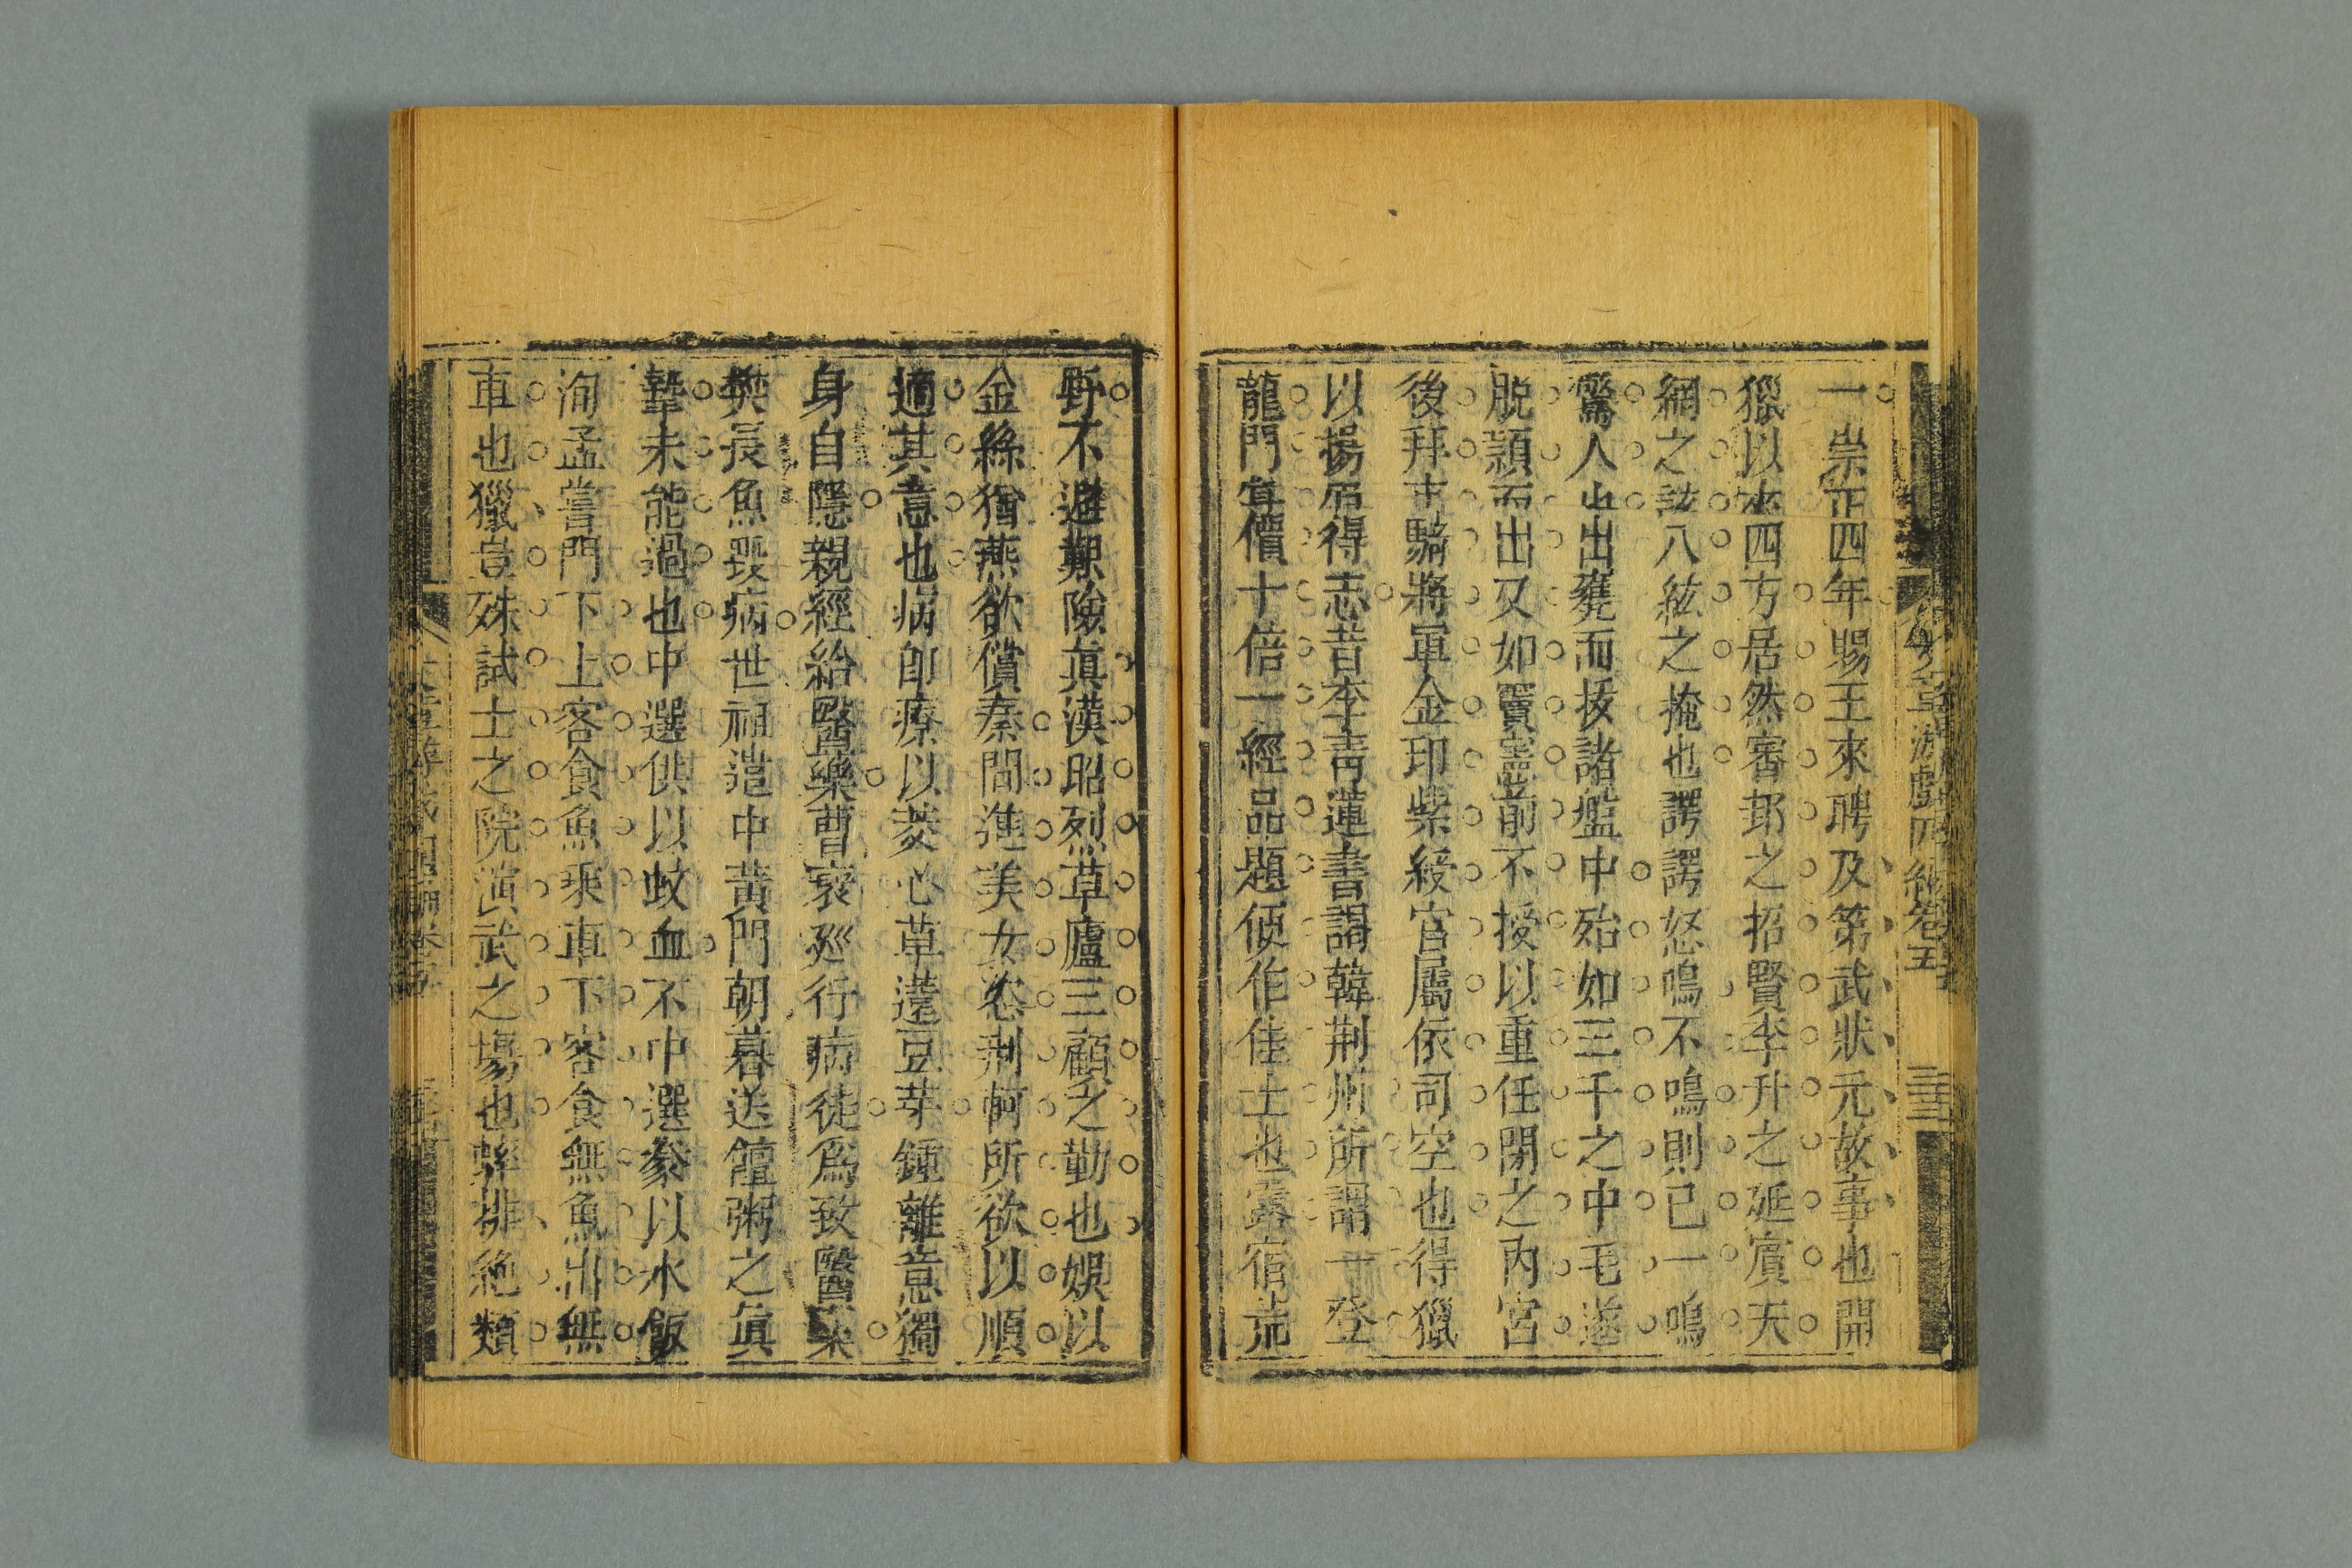 一崇正四年賜王來聘及第武狀元故事也開
獵以來四方居然審邽之招賢李升之延賓天
網之該八紘之掩也諤諤怒鳴不鳴則已一鳴
驚人也出甕而拔諸盤中殆如三千之中毛遂
脫頴而出又如竇憲前不授以重任閉之內宮
後拜車騎將軍金印紫綬官屬依司空也得獵
以揚眉得志昔李青蓮書謂韓荆州所謂一登
龍門聲價十倍一經品題便作佳士也露宿荒
野不避艱險眞漢昭烈草廬三顧之勤也娛以
金絲猶燕欲償秦間進美女恣荆軻所欲以順
適其意也病卽療以菱心草薳豆芽鍾離意獨
身自隱親經給醫藥曹褒廵行病徒爲致醫藥
樊長魚毀病世祖遣中黃門朝暮送饘粥之眞
摯未能過也中選供以蚊血不中選豢以水飯
洵孟嘗門下上客食魚乘車下客食無魚出無
車也獵豈殊試士之院演武之場也
排絶類
游戲
卷五
三三